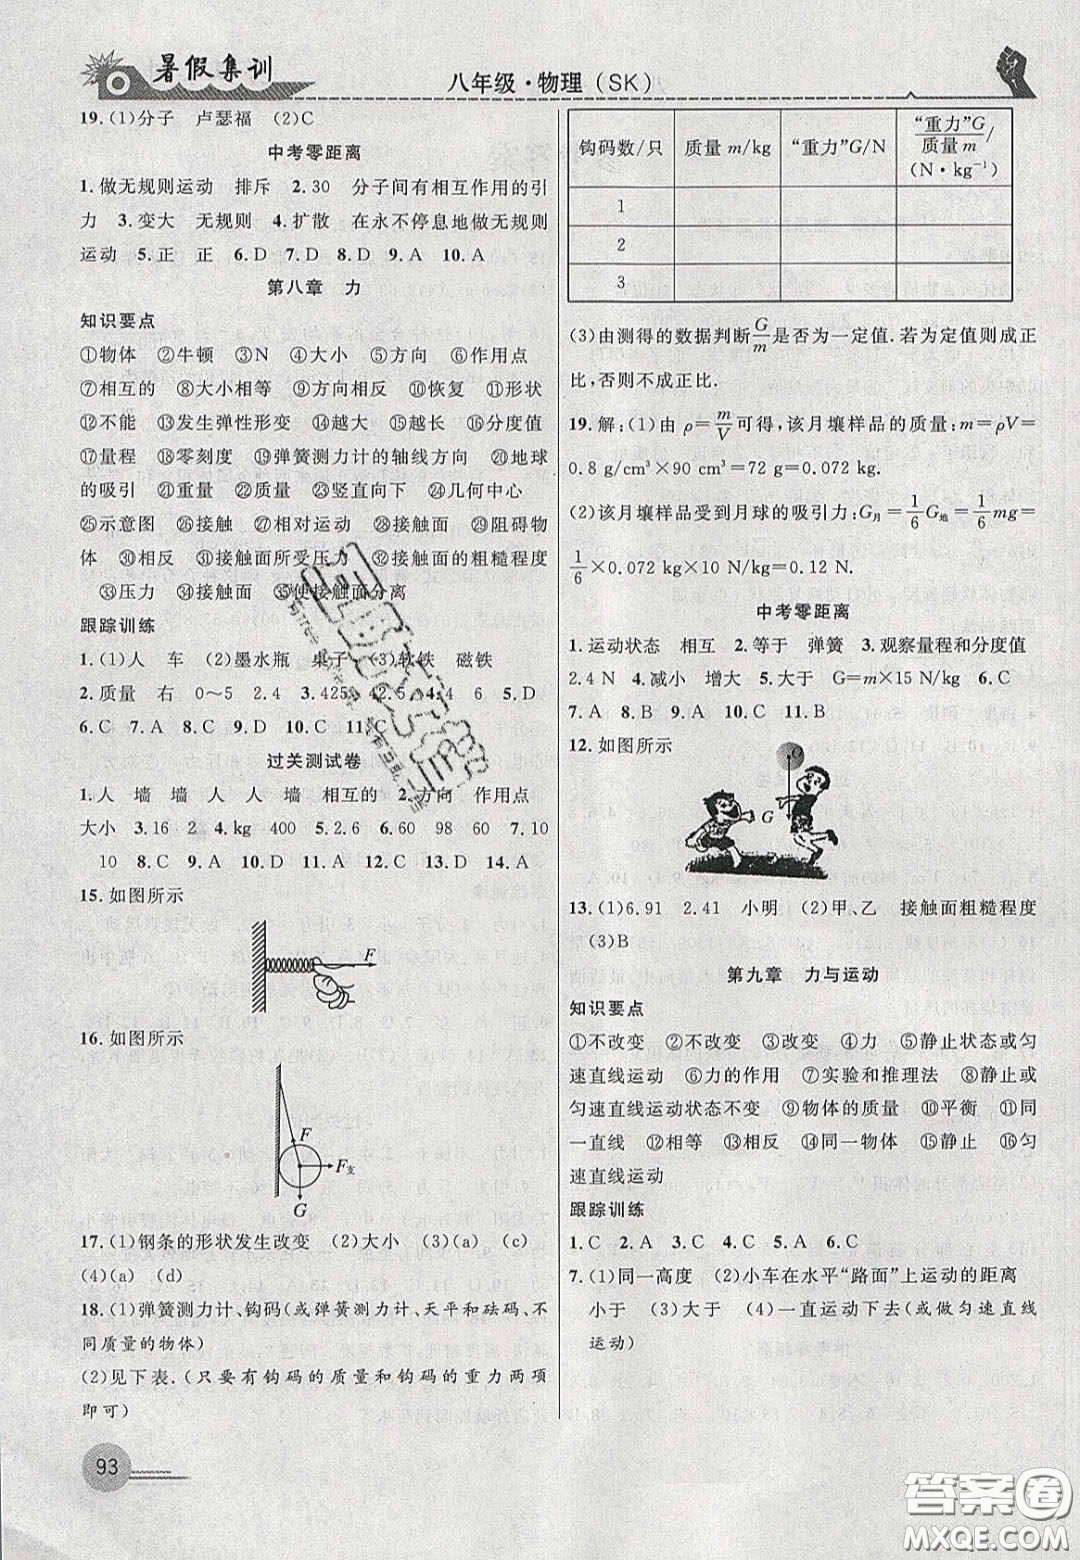 暑假集训
八年级·物理(SK)
19.(1)分子 卢瑟福 (2)C
中考零距离
1.做无规则运动 排斥 2.30 分子间有相互作用的引
力 3.变大 无规则 4.扩散 在永不停息地做无规则
运动 5.正 正 6.D 7.D 8.D 9.A 10.A
第八章 力
知识要点
①物体 ②牛顿 ③N ④大小 ⑤方向 ⑥作用点
⑦相互的 ⑧大小相等 ⑨方向相反 ⑩恢复 ⑪形状
⑫不能 ⑬发生弹性形变 ⑭越大 ⑮越长 ⑯分度值
⑰量程 ⑱零刻度 ⑲弹簧测力计的轴线方向 ⑳地球
的吸引 ㉑重量 ㉒质量 ㉓竖直向下 ㉔几何中心
㉕示意图 ㉖接触 ㉗相对运动 ㉘接触面 ㉙阻碍物
体 ㉚相反 ㉛接触面所受压力 ㉜接触面的粗糙程度
㉝压力 ㉞接触面 ㉟使接触面分离
跟踪训练
1.(1)人 车 (2)墨水瓶 桌子 (3)软铁 磁铁
2.质量 右 0～5 2.4 3.425 42.5 4.4 6 5.D
6.C 7.A 8.C 9.D 10.C 11.C
过关测试卷
1.人 墙 墙 人 人 墙 相互的 2.方向 作用点
大小 3.16 2 4.kg 400 5.2.6 6.60 98 60 7.10
10 8.C 9.A 10.D 11.A 12.C 13.D 14.A
15.如图所示
F
16.如图所示
F
F支
G
17.(1)钢条的形状发生改变 (2)大小 (3)(a) (c)
(4)(a) (d)
18.(1)弹簧测力计、钩码(或弹簧测力计、天平和砝码、不
同质量的物体)
(2)见下表.(只要有钩码的质量和钩码的重力两项
即可)
钩码数/只 质量 m/kg “重力”G/N “重力”G/质量 m/(N·kg⁻¹)
1
2
3
(3)由测得的数据判断G/m是否为一定值.若为定值则成正
比,否则不成正比.
19.解:(1)由 ρ=m/V可得,该月壤样品的质量:m=ρV=
0.8 g/cm³×90 cm³=72 g=0.072 kg.
(2)该月壤样品受到月球的吸引力:G月=1/6G地=1/6mg=
1/6×0.072 kg×10 N/kg=0.12 N.
中考零距离
1.运动状态 相互 2.等于 弹簧 3.观察量程和分度值
2.4 N 4.减小 增大 5.大于 G=m×15 N/kg 6.C
7.A 8.B 9.A 10.C 11.B
12.如图所示
O
G
13.(1)6.91 2.41 小明 (2)甲、乙 接触面粗糙程度
(3)B
第九章 力与运动
知识要点
①不改变 ②改变 ③改变 ④力 ⑤静止状态或匀
速直线运动 ⑥力的作用 ⑦实验和推理法 ⑧静止或
匀速直线运动状态不变 ⑨物体的质量 ⑩平衡 ⑪同
一直线 ⑫相等 ⑬相反 ⑭同一物体 ⑮静止 ⑯匀
速直线运动
跟踪训练
1.C 2.A 3.C 4.C 5.A 6.C
7.(1)同一高度 (2)小车在水平“路面”上运动的距离
小于 (3)大于 (4)一直运动下去(或做匀速直线
运动)
93
答案圈
MXQE.COM